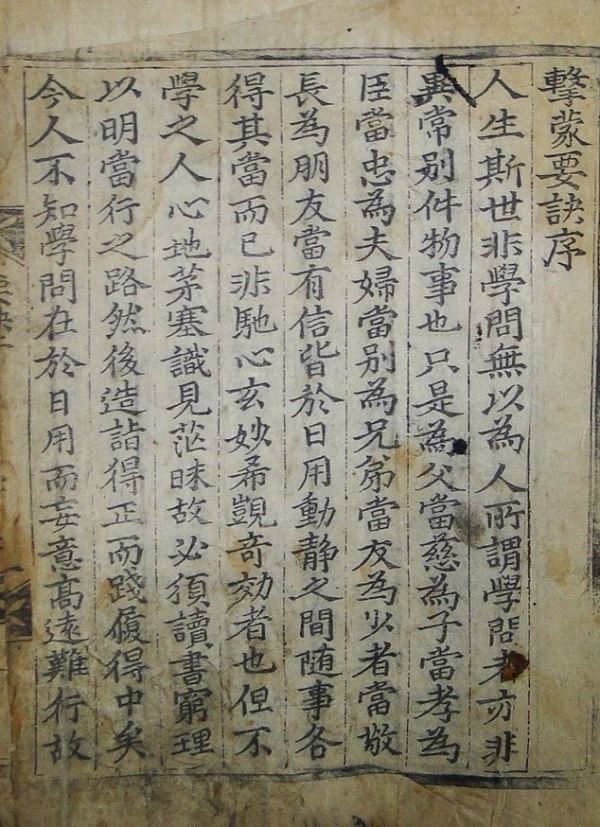 擊蒙要訣序
人生斯世非學問無以為人所謂學問者亦非
異常別件物事也只是為父當慈為子當孝為
臣當忠為夫婦當別為兄弟當友為少者當敬
長為朋友當有信皆於日用動静之間随事各
得其當而已非馳心玄妙希覬奇効者也但不
學之人心地茅塞識見茫昧故必須讀書窮理
以明當行之路然後造詣得正而踐履得中矣
今人不知學問在於日用而妄意高遠難行故